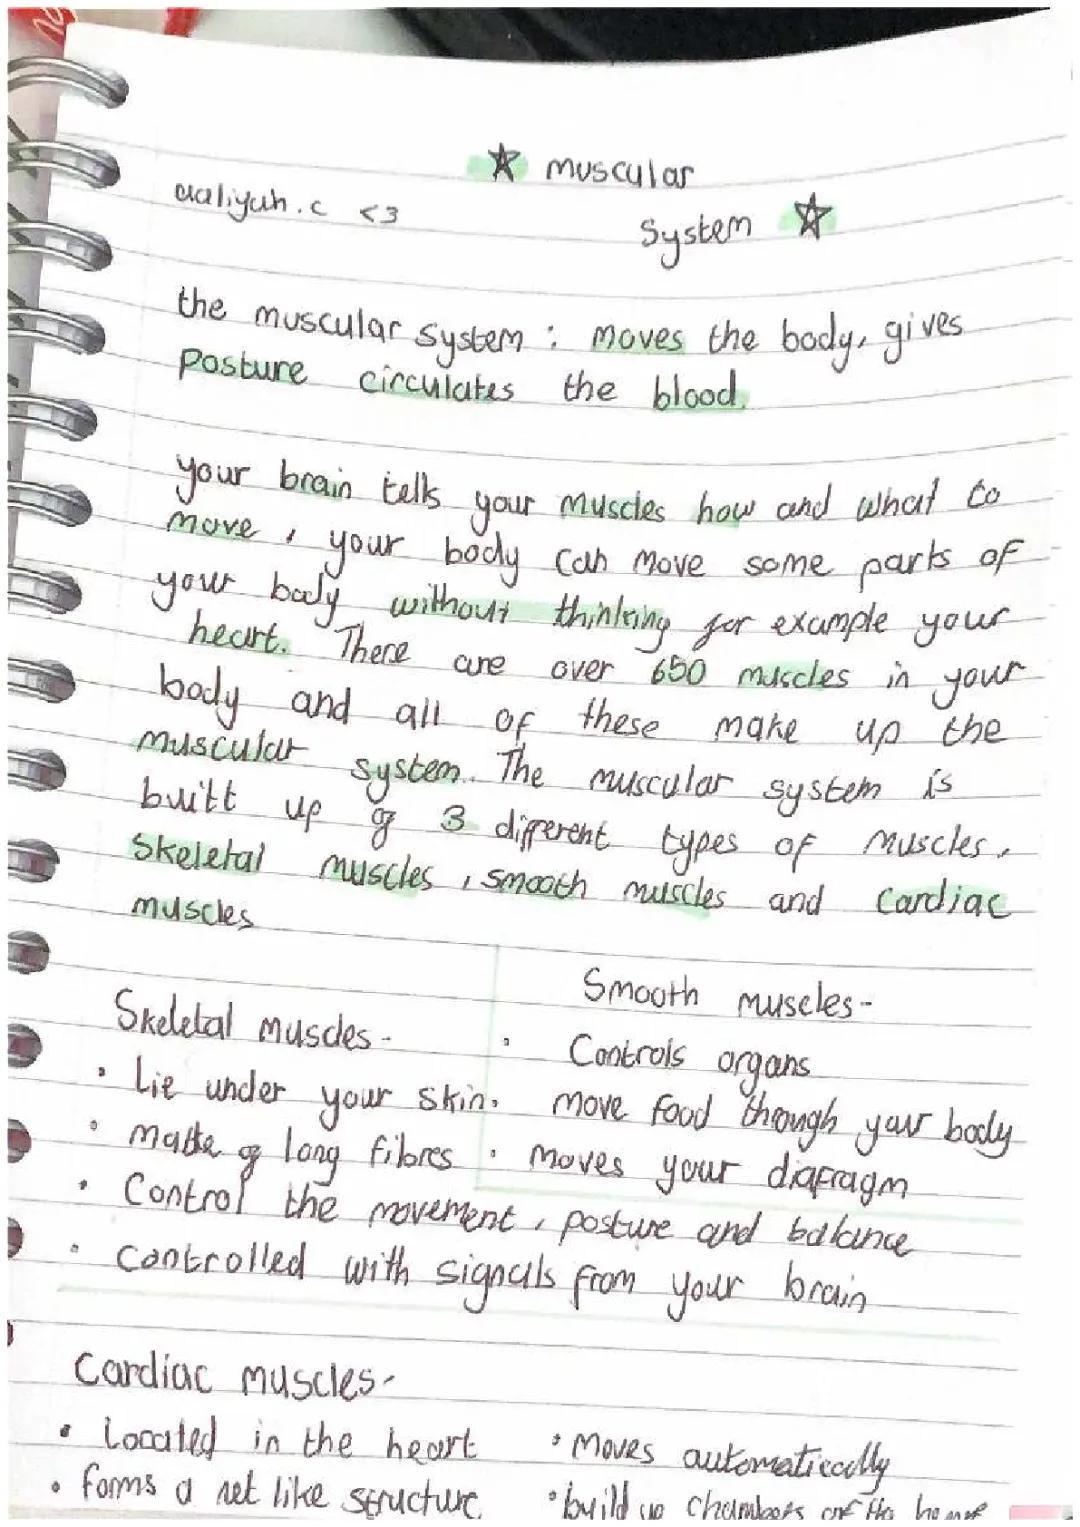 ☆ muscular
aaliyah.c <3
System ☆
the muscular system : moves the body, gives
Posture circulates the blood.
your brain tells your muscles how and what to
move, your body can move some parts of
your body without thinking for example your
heart. There are over 650 muscles in your
body and all of these make up the
muscular system. The muscular system is
built up of 3 different types of muscles,
Skeletal muscles, smooth muscles and cardiac
muscles
Smooth muscles-
• Controls organs
move food through your body
• moves your diafragm
Skeletal muscles -
• Lie under your skin.
• made of long fibres
• Control the movement, posture and balance
• controlled with signals from your brain
Cardiac muscles-
• Located in the heart
• forms a net like structure
• Moves automatically
• build up chambers of the heart